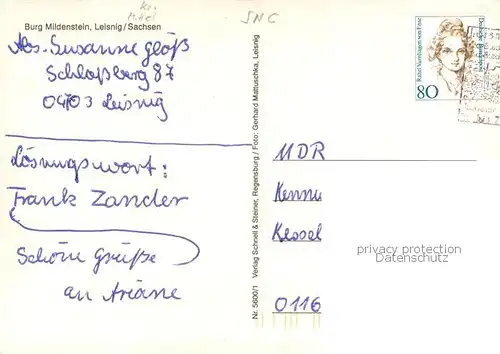 Burg Mildenstein, Leisnig/Sachsen
SNC
Abs. Susanne Gloß
Schloßberg 87
04703 Leisnig
Lösungswort:
Frank Zander
Schöne Grüße
an Ariane
Nr. 5600/1 Verlag Schnell & Steiner, Regensburg / Foto: Gerhard Mattuschka, Leisnig
Rahel Varnhagen von Ense
Deutsche Bundespost
80
MDR
Kennu
Kessel
0116
privacy protection
Datenschutz